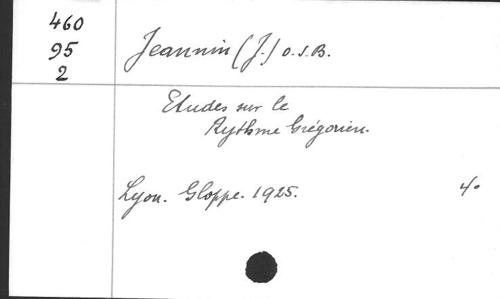 460
95
2
Jeannin (J.) O.S.B.
Etudes sur le
Rythme Grégorien.
Lyon. Gloppe. 1925.
4°